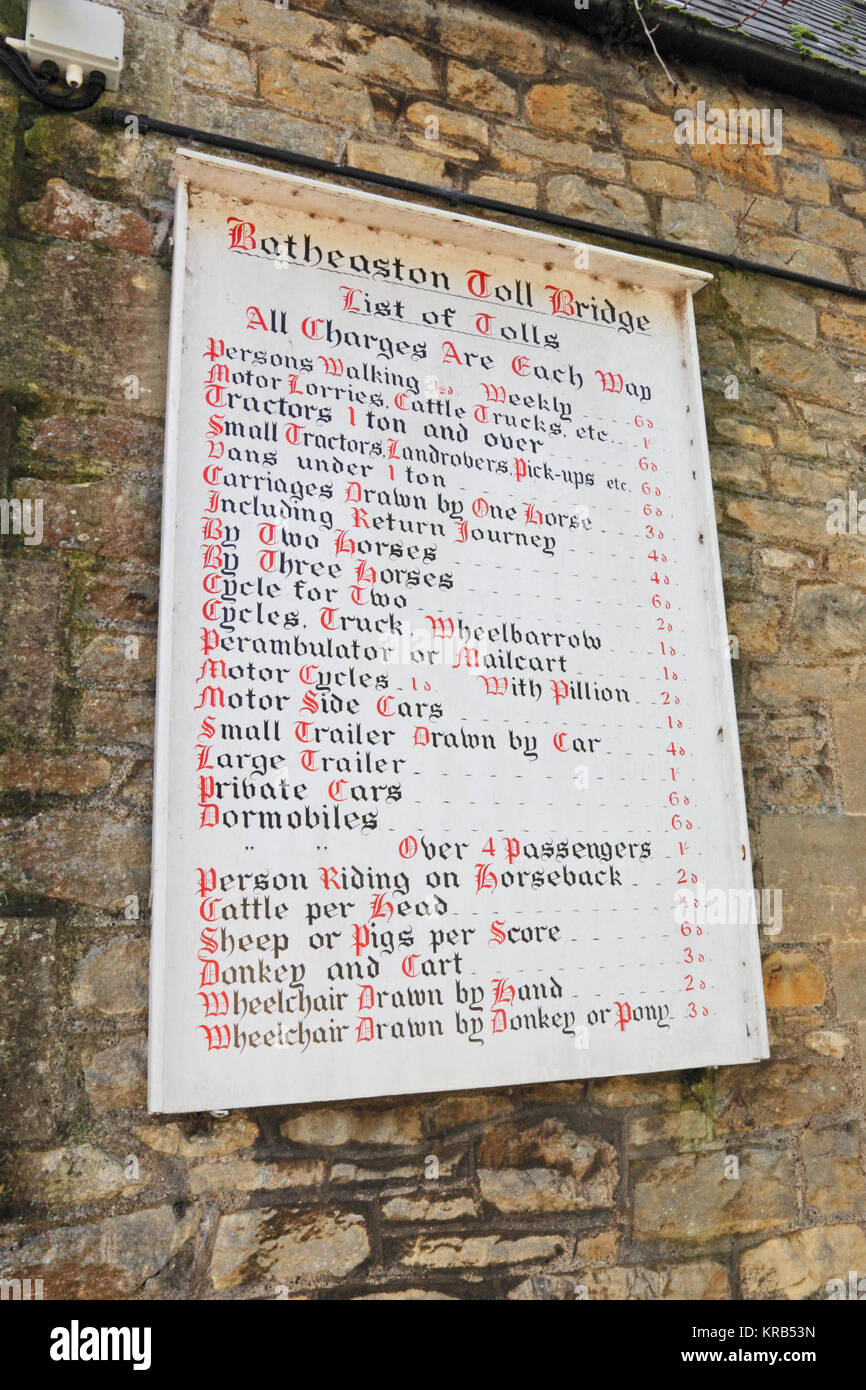 Batheaston Toll Bridge
List of Tolls
All Charges Are Each Way
Persons Walking ½d. Weekly 6d
Motor Lorries, Cattle Trucks, etc. 1/-
Tractors 1 ton and over 6d
Small Tractors, Landrovers, Pick-ups etc. 6d
Vans under 1 ton 6d
Carriages Drawn by One Horse 3d
Including Return Journey 4d
By Two Horses 4d
By Three Horses 6d
Cycle for Two 2d
Cycles, Truck, Wheelbarrow 1d
Perambulator or Mailcart 1d
Motor Cycles 1d With Pillion 2d
Motor Side Cars 1d
Small Trailer Drawn by Car 4d
Large Trailer 1/-
Private Cars 6d
Dormobiles 6d
" " Over 4 Passengers 1/-
Person Riding on Horseback 2d
Cattle per Head ½d
Sheep or Pigs per Score 6d
Donkey and Cart 3d
Wheelchair Drawn by Hand 2d
Wheelchair Drawn by Donkey or Pony 3d
alamy
alamy stock photo
KRB53N
www.alamy.com